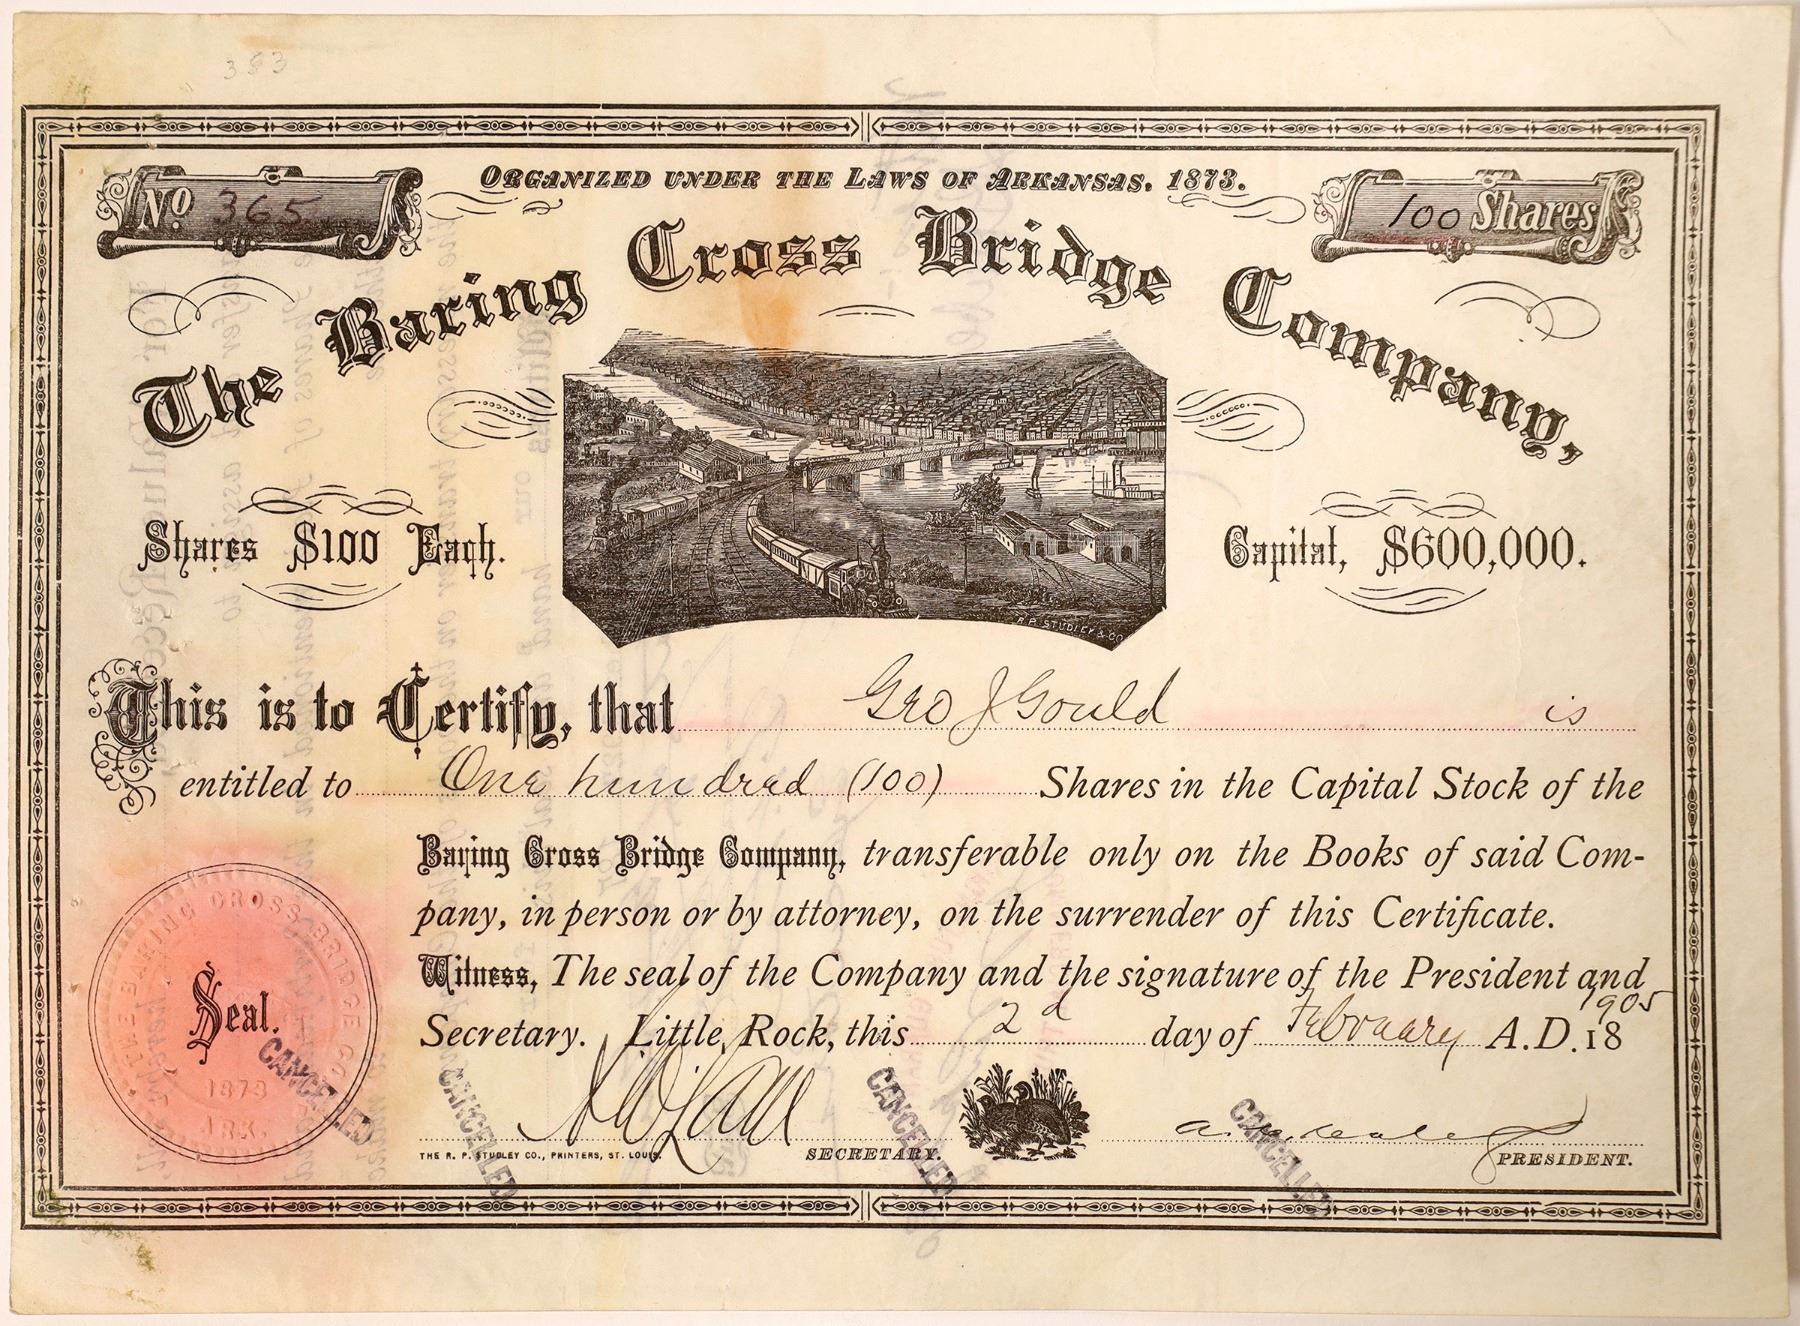 383
ORGANIZED UNDER THE LAWS OF ARKANSAS, 1873.
No 365
100 Shares
The Baring Cross Bridge Company,
Shares $100 Each.
Capital, $600,000.
R. P. STUDLEY & CO
This is to Certify, that Geo J Gould is
entitled to One hundred (100) Shares in the Capital Stock of the
Baring Cross Bridge Company, transferable only on the Books of said Com-
pany, in person or by attorney, on the surrender of this Certificate.
Witness, The seal of the Company and the signature of the President and
Secretary. Little Rock, this 2d day of February A.D. 18 1905
THE BARING CROSS BRIDGE CO.
Seal.
1873
ARK.
CANCELLED
CANCELLED
CANCELLED
CANCELLED
THE R. P. STUDLEY CO., PRINTERS, ST. LOUIS.
SECRETARY.
PRESIDENT.